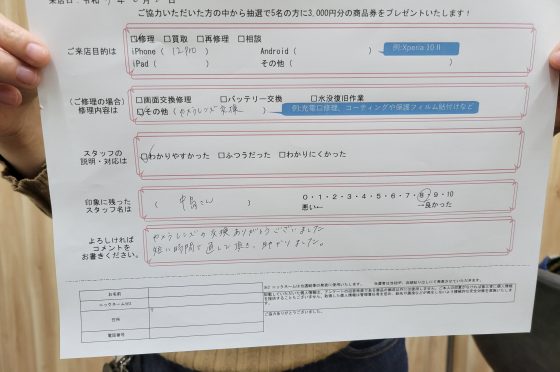 ご協力いただいた方の中から抽選で5名の方に3,000円分の商品券をプレゼントいたします!
ご来店目的は
□修理 □買取 □再修理 □相談
iPhone ( 12 Pro ) Android ( ) 例:Xperia 10 II
iPad ( ) その他 ( )
(ご修理の場合)
修理内容は
□画面交換修理 □バッテリー交換 □水没復旧作業
□その他 ( カメラレンズ交換 ) 例:充電口修理、コーティングや保護フィルム貼付けなど
スタッフの
説明・対応は
□わかりやすかった □ふつうだった □わかりにくかった
印象に残った
スタッフ名は
( 中島さん ) 0・1・2・3・4・5・6・7・8・9・10
悪い← →良かった
よろしければ
コメントを
お書きください。
カメラレンズの交換ありがとうございました
短い時間で直して頂き、助かりました。
お名前
ニックネーム
住所
〒
電話番号
ご協力ありがとうございました。